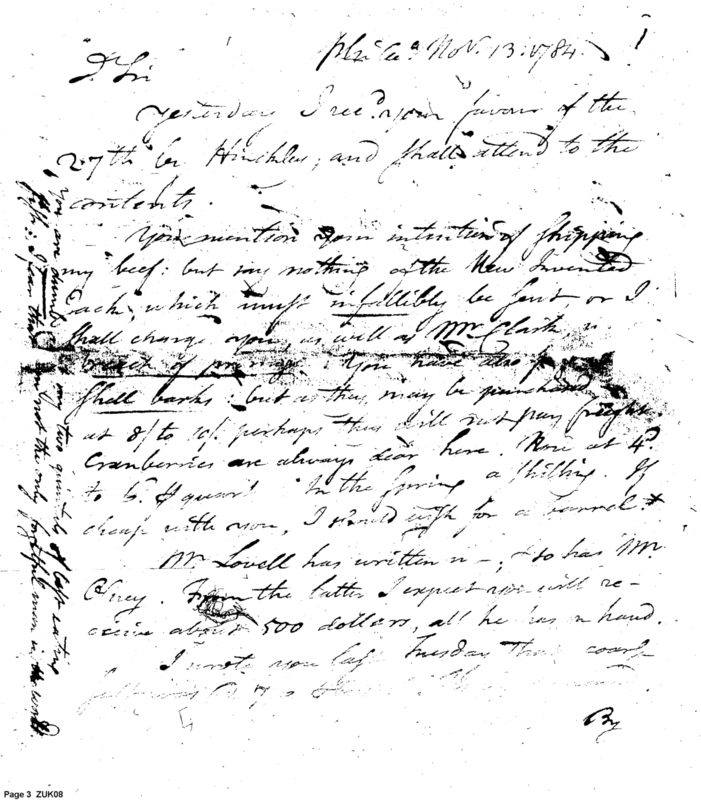 Philada Nov. 13. 1784.
Dr Sir
Yesterday I recd your favour of the
27th by Hinckley, and shall attend to the
contents.
You mention your intention of shipping
my beef: but say nothing of the New Invented
Jack, which must infallibly be sent or I
shall charge you, as well as Mr Clark
breach of promise. You have also
Shell barks: but as they may be purchased
at 8/ to 10/. perhaps they will not pay freight.
Cranberries are always dear here. Now at 4d.
to 6d. quart. In the spring a shilling. If
cheap with you, I should wish for a barrel.*
Mr Lovell has written ; & so has Mr
Olney. From the latter I expect you will re-
ceive about 500 dollars, all he has in hand.
I wrote you last Tuesday that
By
* You are dumb my two quintals of best eating
fish: I fear that not the only forgetful man in the world.
Page 3 ZUK08